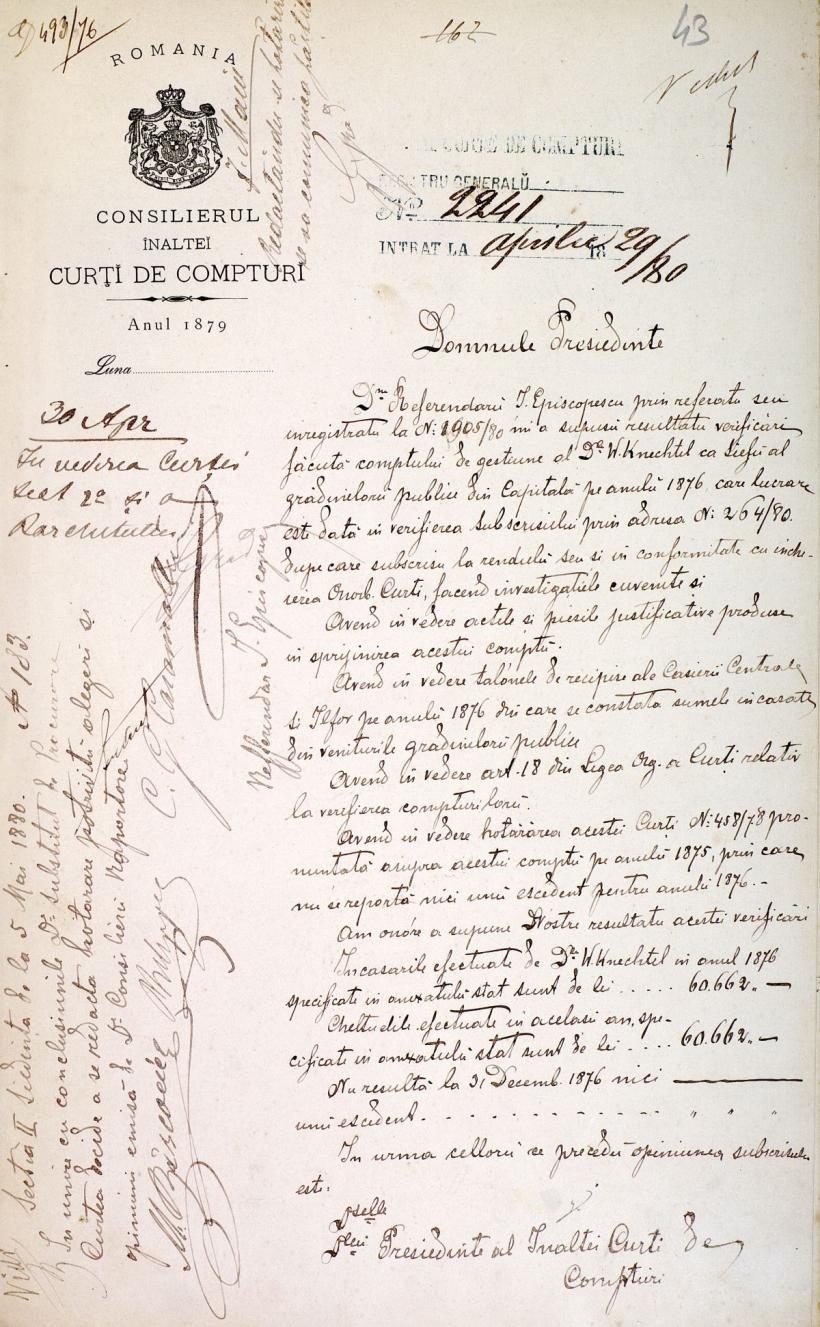 493/76
162
43
ROMANIA
CONSILIERUL
ÎNALTEI
CURŢI DE COMPTURI
Anul 1879
Luna
CURTE DE COMPTURI
REGISTRU GENERALŬ
No 2241
INTRAT LA Aprilie 29 18/80
7 Maiu
Redactându-se hotarirea
se va comunica părţilor
30 Apr
In vederea Curţei
sect 2a si a
Parchetului
Referendar I. Episcopescu
Domnule Presiedinte
Dnu Referendarŭ I. Episcopescu prin referatu seu
inregistratu la No: 1905/80 mi a supusŭ resultatu verificări
făcută comptului de gestiune al Dlui W. Knechtel ca Siefŭ al
grădinelorŭ publice din Capitală pe anulŭ 1876, care lucrare
este dată in verifierea subscrisului prin adresa No: 264/80.
dupe care subscrisu la rendulŭ seu si in conformitate cu inche-
ierea Onorb. Curti, facend investigatiile cuvenite si
Avend in vedere actele si piesile justificative produse
in sprijinirea acestui comptŭ.
Avend in vedere talónele de recipise ale Casierii Centrale
si Ilfov pe anulŭ 1876 din care se constata sumele incasate
din veniturile grădinelorŭ publice
Avend in vedere art. 18 din Legea Org. a Curţi relativ
la verifierea compturilorŭ.
Avend in vedere hotărârea acestei Curţi No: 458/78 pro-
nuntată asupra acestui comptŭ pe anulŭ 1875, prin care
nu se reportă nici unŭ escedent pentru anulŭ 1876. -
Am onóre a supune DVostre resultatu acestei verificări
Incasarile efectuate de Dlu W. Knechtel in anul 1876
specificate in anexatulŭ stat sunt de lei ..... 60.662 „ —
Cheltuelile efectuate in acelasi an, spe-
cificate in anexatulŭ stat sunt de lei .... 60.662 „ —
Nu resultă la 31 Decemb. 1876 nici ———
unŭ escedent. - - - - - - - - - - „ „ „
In urma cellorŭ ce precedŭ opiniunea subscrisului
este:
Dselle
Dlui Presiedinte al Inaltei Curti de
Compturi
Sectia II Siedinta de la 5 Mai 1880. No 183.
In unire cu conclusiunile Dlui substitut de Procurore
Curtea decide a se redacta hotarare potrivitŭ alegeri si
opiniunii emisă de Dl Consilierŭ Raportore